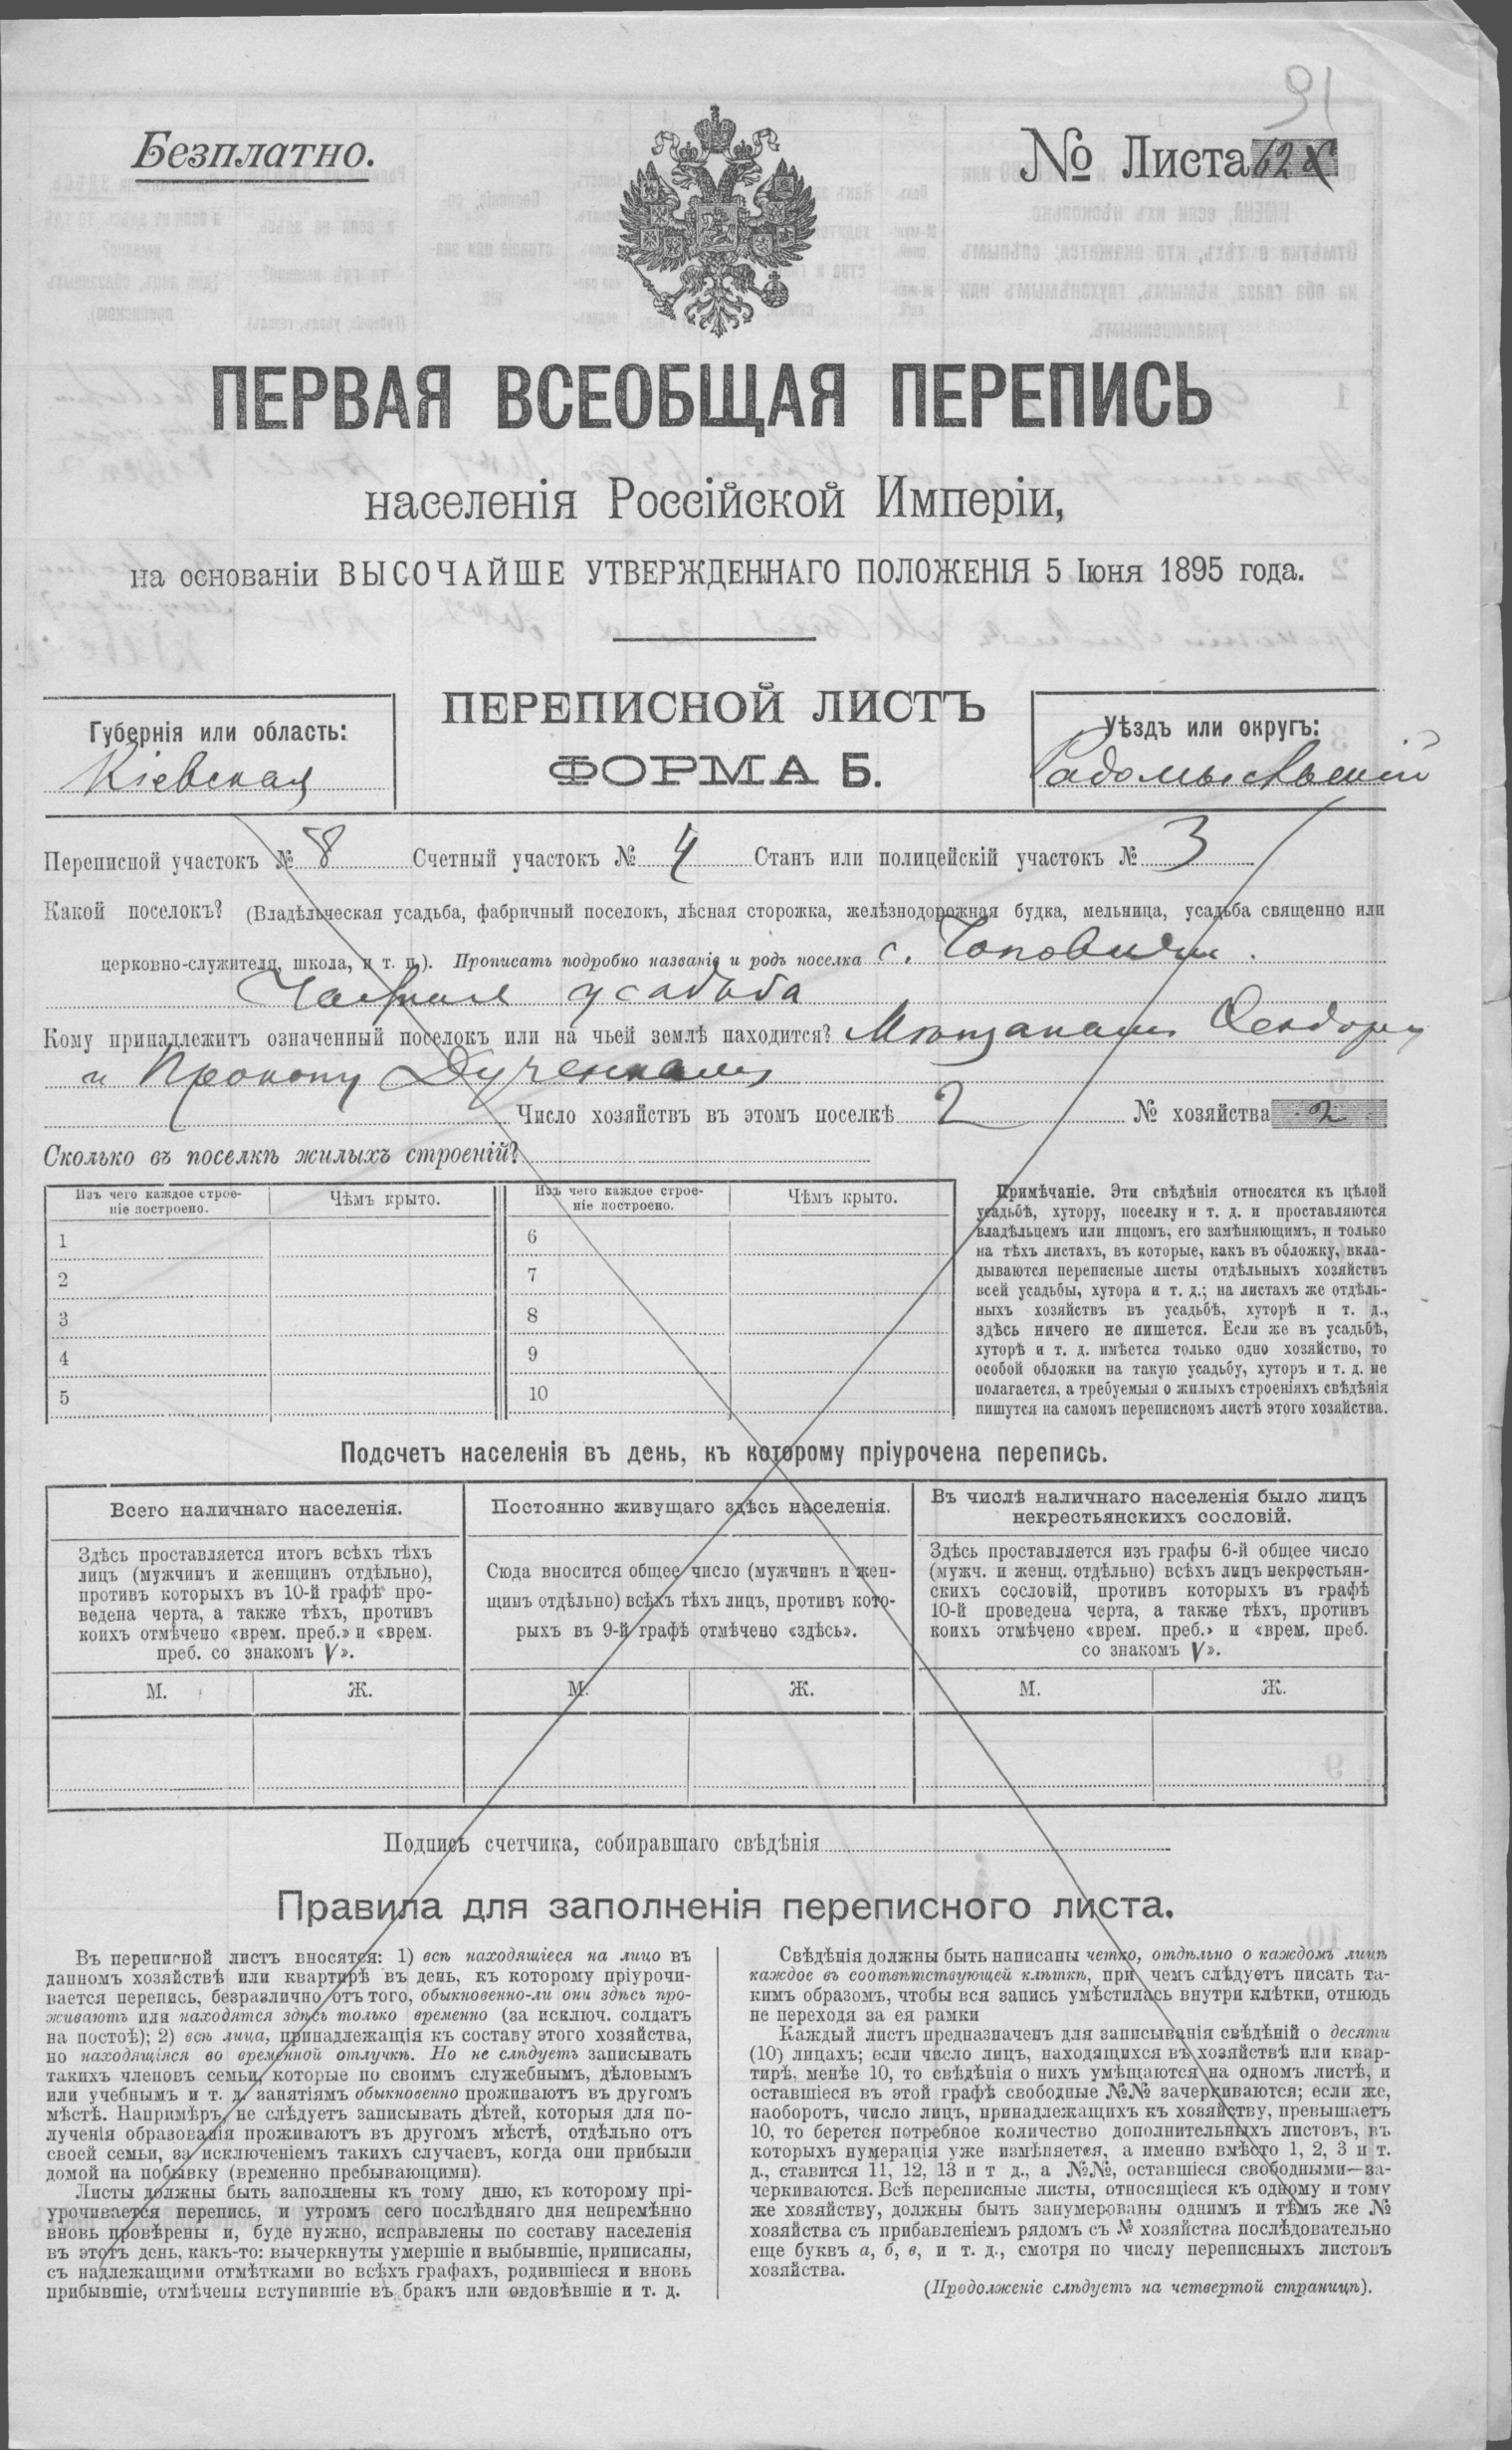 91
Безплатно.
№ Листа 62
ПЕРВАЯ ВСЕОБЩАЯ ПЕРЕПИСЬ
населенія Россійской Имперіи,
на основаніи ВЫСОЧАЙШЕ УТВЕРЖДЕННАГО ПОЛОЖЕНІЯ 5 Іюня 1895 года.
Губернія или область:
Кіевская
ПЕРЕПИСНОЙ ЛИСТЪ
ФОРМА Б.
Уѣздъ или округъ:
Радомысльскій
Переписной участокъ № 8 Счетный участокъ № 4 Станъ или полицейскій участокъ № 3
Какой поселокъ? (Владѣльческая усадьба, фабричный поселокъ, лѣсная сторожка, желѣзнодорожная будка, мельница, усадьба священно или
церковно-служителя, школа, и т. п.). Прописать подробно названіе и родъ поселка с. Чоповичи.
Частная усадьба
Кому принадлежитъ означенный поселокъ или на чьей землѣ находится? Мѣщанамъ
и Прокопу
Число хозяйствъ въ этомъ поселкѣ 2 № хозяйства 2
Сколько въ поселкѣ жилыхъ строеній?
Изъ чего каждое строе-
ніе построено.
Чѣмъ крыто.
Изъ чего каждое строе-
ніе построено.
Чѣмъ крыто.
1 6
2 7
3 8
4 9
5 10
Примѣчаніе. Эти свѣдѣнія относятся къ цѣлой
усадьбѣ, хутору, поселку и т. д. и проставляются
владѣльцемъ или лицомъ, его замѣняющимъ, и только
на тѣхъ листахъ, въ которые, какъ въ обложку, вкла-
дываются переписные листы отдѣльныхъ хозяйствъ
всей усадьбы, хутора и т. д.; на листахъ же отдѣль-
ныхъ хозяйствъ въ усадьбѣ, хуторѣ и т. д.,
здѣсь ничего не пишется. Если же въ усадьбѣ,
хуторѣ и т. д. имѣется только одно хозяйство, то
особой обложки на такую усадьбу, хуторъ и т. д. не
полагается, а требуемыя о жилыхъ строеніяхъ свѣдѣнія
пишутся на самомъ переписномъ листѣ этого хозяйства.
Подсчетъ населенія въ день, къ которому пріурочена перепись.
Всего наличнаго населенія.
Здѣсь проставляется итогъ всѣхъ тѣхъ
лицъ (мужчинъ и женщинъ отдѣльно),
противъ которыхъ въ 10-й графѣ про-
ведена черта, а также тѣхъ, противъ
коихъ отмѣчено «врем. преб.» и «врем.
преб. со знакомъ V».
М. Ж.
Постоянно живущаго здѣсь населенія.
Сюда вносится общее число (мужчинъ и жен-
щинъ отдѣльно) всѣхъ тѣхъ лицъ, противъ кото-
рыхъ въ 9-й графѣ отмѣчено «здѣсь».
М. Ж.
Въ числѣ наличнаго населенія было лицъ
некрестьянскихъ сословій.
Здѣсь проставляется изъ графы 6-й общее число
(мужч. и женщ. отдѣльно) всѣхъ лицъ некрестьян-
скихъ сословій, противъ которыхъ въ графѣ
10-й проведена черта, а также тѣхъ, противъ
коихъ отмѣчено «врем. преб.» и «врем. преб.
со знакомъ V».
М. Ж.
Подпись счетчика, собиравшаго свѣдѣнія
Правила для заполненія переписного листа.
Въ переписной листъ вносятся: 1) всѣ находящіеся на лицо въ
данномъ хозяйствѣ или квартирѣ въ день, къ которому пріурочи-
вается перепись, безразлично отъ того, обыкновенно-ли они здѣсь про-
живаютъ или находятся здѣсь только временно (за исключ. солдатъ
на постоѣ); 2) всѣ лица, принадлежащія къ составу этого хозяйства,
но находящіяся во временной отлучкѣ. Но не слѣдуетъ записывать
такихъ членовъ семьи, которые по своимъ служебнымъ, дѣловымъ
или учебнымъ и т. д. занятіямъ обыкновенно проживаютъ въ другомъ
мѣстѣ. Напримѣръ, не слѣдуетъ записывать дѣтей, которыя для по-
лученія образованія проживаютъ въ другомъ мѣстѣ, отдѣльно отъ
своей семьи, за исключеніемъ такихъ случаевъ, когда они прибыли
домой на побывку (временно пребывающими).
Листы должны быть заполнены къ тому дню, къ которому прі-
урочивается перепись, и утромъ сего послѣдняго дня непремѣнно
вновь провѣрены и, буде нужно, исправлены по составу населенія
въ этотъ день, какъ-то: вычеркнуты умершіе и выбывшіе, приписаны,
съ надлежащими отмѣтками во всѣхъ графахъ, родившіеся и вновь
прибывшіе, отмѣчены вступившіе въ бракъ или овдовѣвшіе и т. д.
Свѣдѣнія должны быть написаны четко, отдѣльно о каждомъ лицѣ
каждое въ соотвѣтствующей клѣткѣ, при чемъ слѣдуетъ писать та-
кимъ образомъ, чтобы вся запись умѣстилась внутри клѣтки, отнюдь
не переходя за ея рамки
Каждый листъ предназначенъ для записыванія свѣдѣній о десяти
(10) лицахъ; если число лицъ, находящихся въ хозяйствѣ или квар-
тирѣ, менѣе 10, то свѣдѣнія о нихъ умѣщаются на одномъ листѣ, и
оставшіеся въ этой графѣ свободные №№ зачеркиваются; если же,
наоборотъ, число лицъ, принадлежащихъ къ хозяйству, превышаетъ
10, то берется потребное количество дополнительныхъ листовъ, въ
которыхъ нумерація уже измѣняется, а именно вмѣсто 1, 2, 3 и т.
д., ставится 11, 12, 13 и т д., а №№, оставшіеся свободными—за-
черкиваются. Всѣ переписные листы, относящіеся къ одному и тому
же хозяйству, должны быть занумерованы однимъ и тѣмъ же №
хозяйства съ прибавленіемъ рядомъ съ № хозяйства послѣдовательно
еще буквъ а, б, в, и т. д., смотря по числу переписныхъ листовъ
хозяйства.
(Продолженіе слѣдуетъ на четвертой страницѣ).